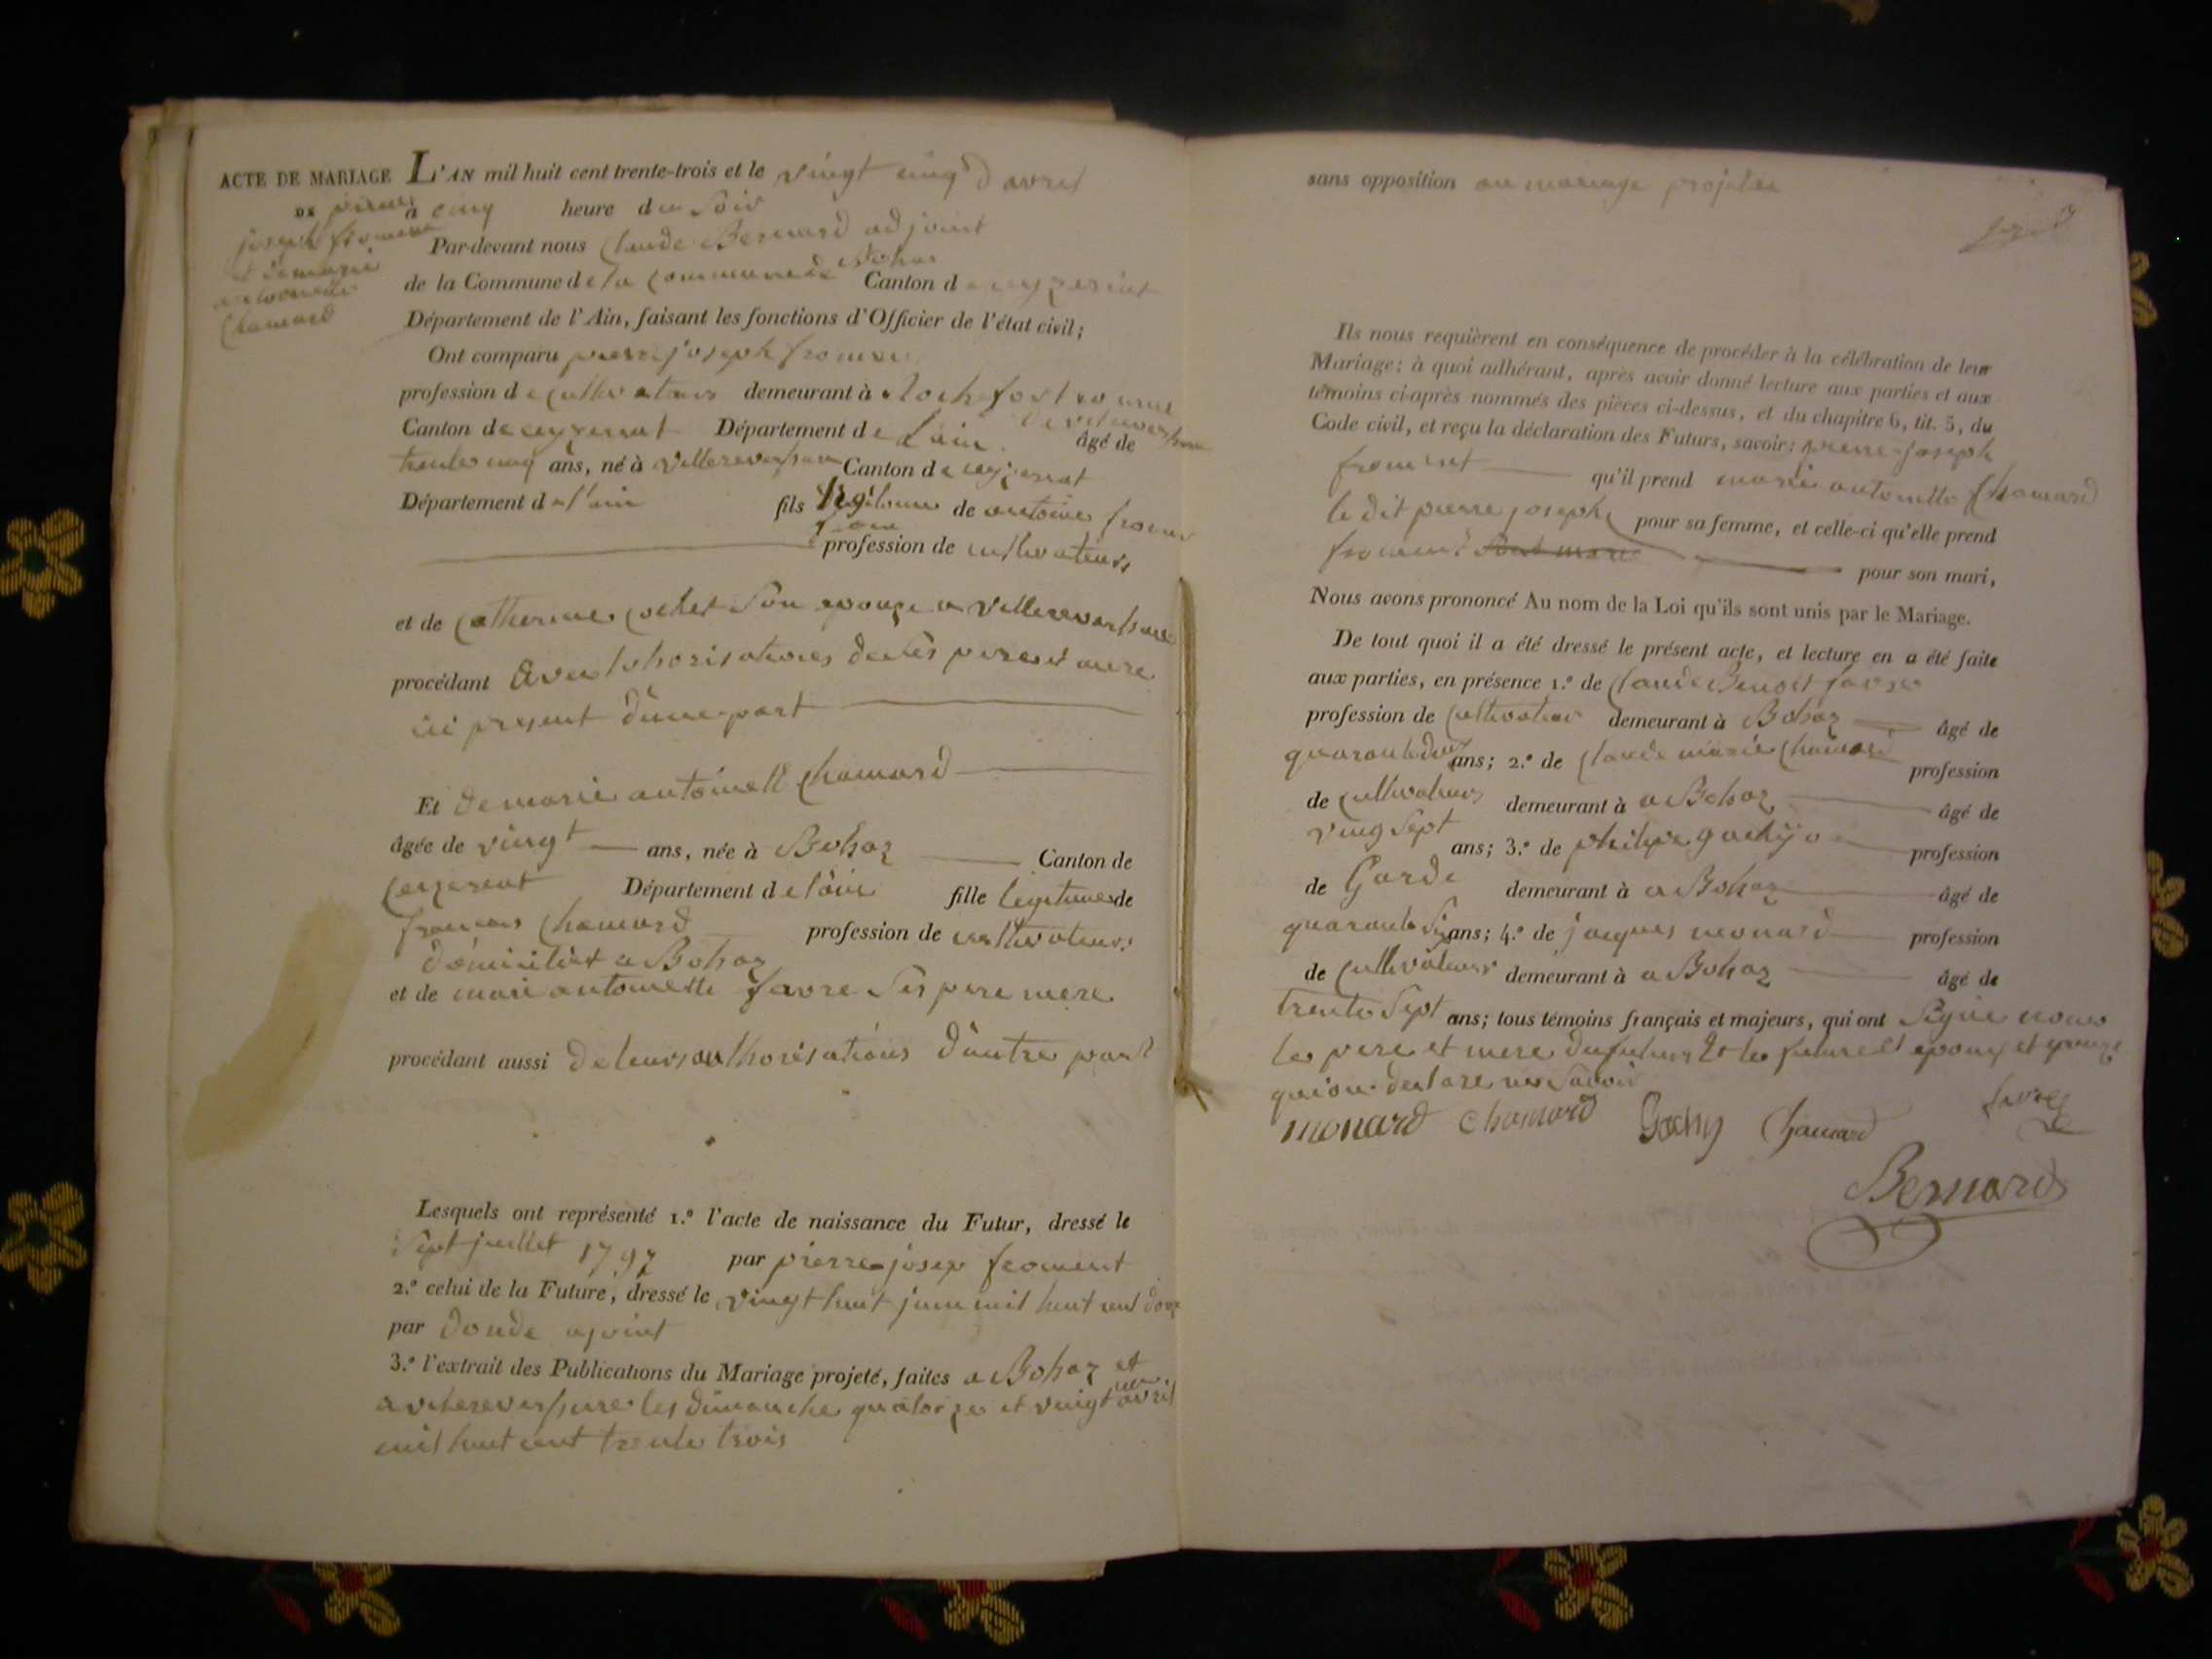 ACTE DE MARIAGE L'AN mil huit cent trente-trois et le vingt cinq d avril
DE pierre
joseph froment
et de marie
antoinette
Chamard
a cinq heure du Soir
Par-devant nous Claude Bernard adjoint
de la Commune de la commune de Bohas Canton de ceyzeriat
Département de l'Ain, faisant les fonctions d'Officier de l'état civil;
Ont comparu pierre joseph froment
profession de cultivateur demeurant à Rochefort commune
de villereversure
Canton de ceyzeriat Département de Lain âgé de
trente cinq ans, né à villereversure Canton de ceyzeriat
Département de l'ain fils légitime de antoine froment
profession de cultivateurs
et de Catherine cochet Son epouze a Villereversure
procédant avec lothorisations de Ses pere et mere
ici present dune part
Et de marie antoinett Chamard
âgée de vingt ans, née à Bohaz Canton de
Ceyzeriat Département de lain fille legitime de
francois Chamard profession de cultivateurs
domicilier a Bohaz
et de mari antoinette favre Ses pere mere
procédant aussi de leurs authorisations dautre part
Lesquels ont représenté 1.º l'acte de naissance du Futur, dressé le
Sept juillet 1797 par pierre josep froment
2.º celui de la Future, dressé le vingt huit juin mil huit cent douze
par donde ajoint
3.º l'extrait des Publications du Mariage projeté, faites a Bohaz et
a villereversure les dimanche quatorze et vingt un avril
mil huit cent trente trois
sans opposition au mariage projetée
Ils nous requièrent en conséquence de procéder à la célébration de leur
Mariage: à quoi adhérant, après avoir donné lecture aux parties et aux
témoins ci-après nommés des pièces ci-dessus, et du chapitre 6, tit. 5, du
Code civil, et reçu la déclaration des Futurs, savoir: pierre-joseph
froment qu'il prend marie antoinette Chamard
le dit pierre joseph pour sa femme, et celle-ci qu'elle prend
froment pour son mari,
Nous avons prononcé Au nom de la Loi qu'ils sont unis par le Mariage.
De tout quoi il a été dressé le présent acte, et lecture en a été faite
aux parties, en présence 1.º de Claude Benoit favre
profession de Cultivateur demeurant à Bohaz âgé de
quarante deux ans; 2.º de Claude marie Chamard profession
de Cultivateurs demeurant à a Bohaz âgé de
vingt Sept ans; 3.º de philipe gachy profession
de Garde demeurant à a Bohaz âgé de
quarante Six ans; 4.º de jacques monard profession
de Cultivateurs demeurant à a Bohaz âgé de
trente Sept ans; tous témoins français et majeurs, qui ont Signé nous
les pere et mere du futur et les future et epoux et epouze
qui on declare ne Savoir
monard Chamard Gachy Chamard favre
Bernard